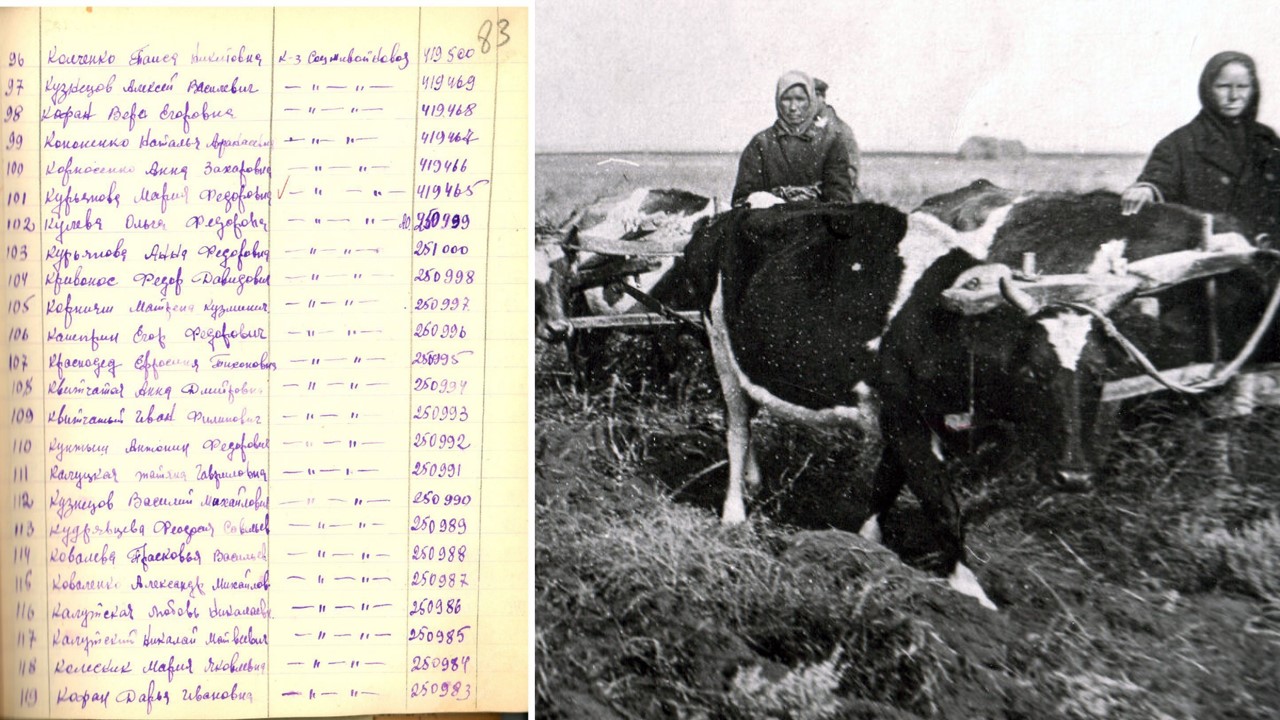 83
96 Колченко Таиса Никитовна к-з 419500
97 Кузнецов Алексей Василевич — " — " — 419469
98 Коран Вера Егоровна — " — " — 419468
99 Кононенко Наталья — " — " — 419467
100 Анна Захаровна — " — " — 419466
101 Курьянова Мария Федоровна — " — " — 419465
102 Ольга Федоровна — " — " — 250999
103 Курьянова Анна Федоровна — " — " — 251000
104 Кривонос Федор Давидович — " — " — 250998
105 — " — " — 250997
106 Егор Федорович — " — " — 250996
107 Краснодед Евросиния Тихоновна — " — " — 250995
108 Квитчатая Анна Дмитровна — " — " — 250994
109 Квитчатый Иван Филипович — " — " — 250993
110 Федорович — " — " — 250992
111 Калуцкая Гавриловна — " — " — 250991
112 Кузнецов Василий Михайлович — " — " — 250990
113 Кудрявцева — " — " — 250989
114 Ковалева Прасковья — " — " — 250988
115 Коваленко Александр Михайлов — " — " — 250987
116 Калутская Любовь Николаевна — " — " — 250986
117 Калутский Николай Матвеевич — " — " — 250985
118 Колесник Мария Яковлевна — " — " — 250984
119 Коран Дарья Ивановна — " — " — 250983